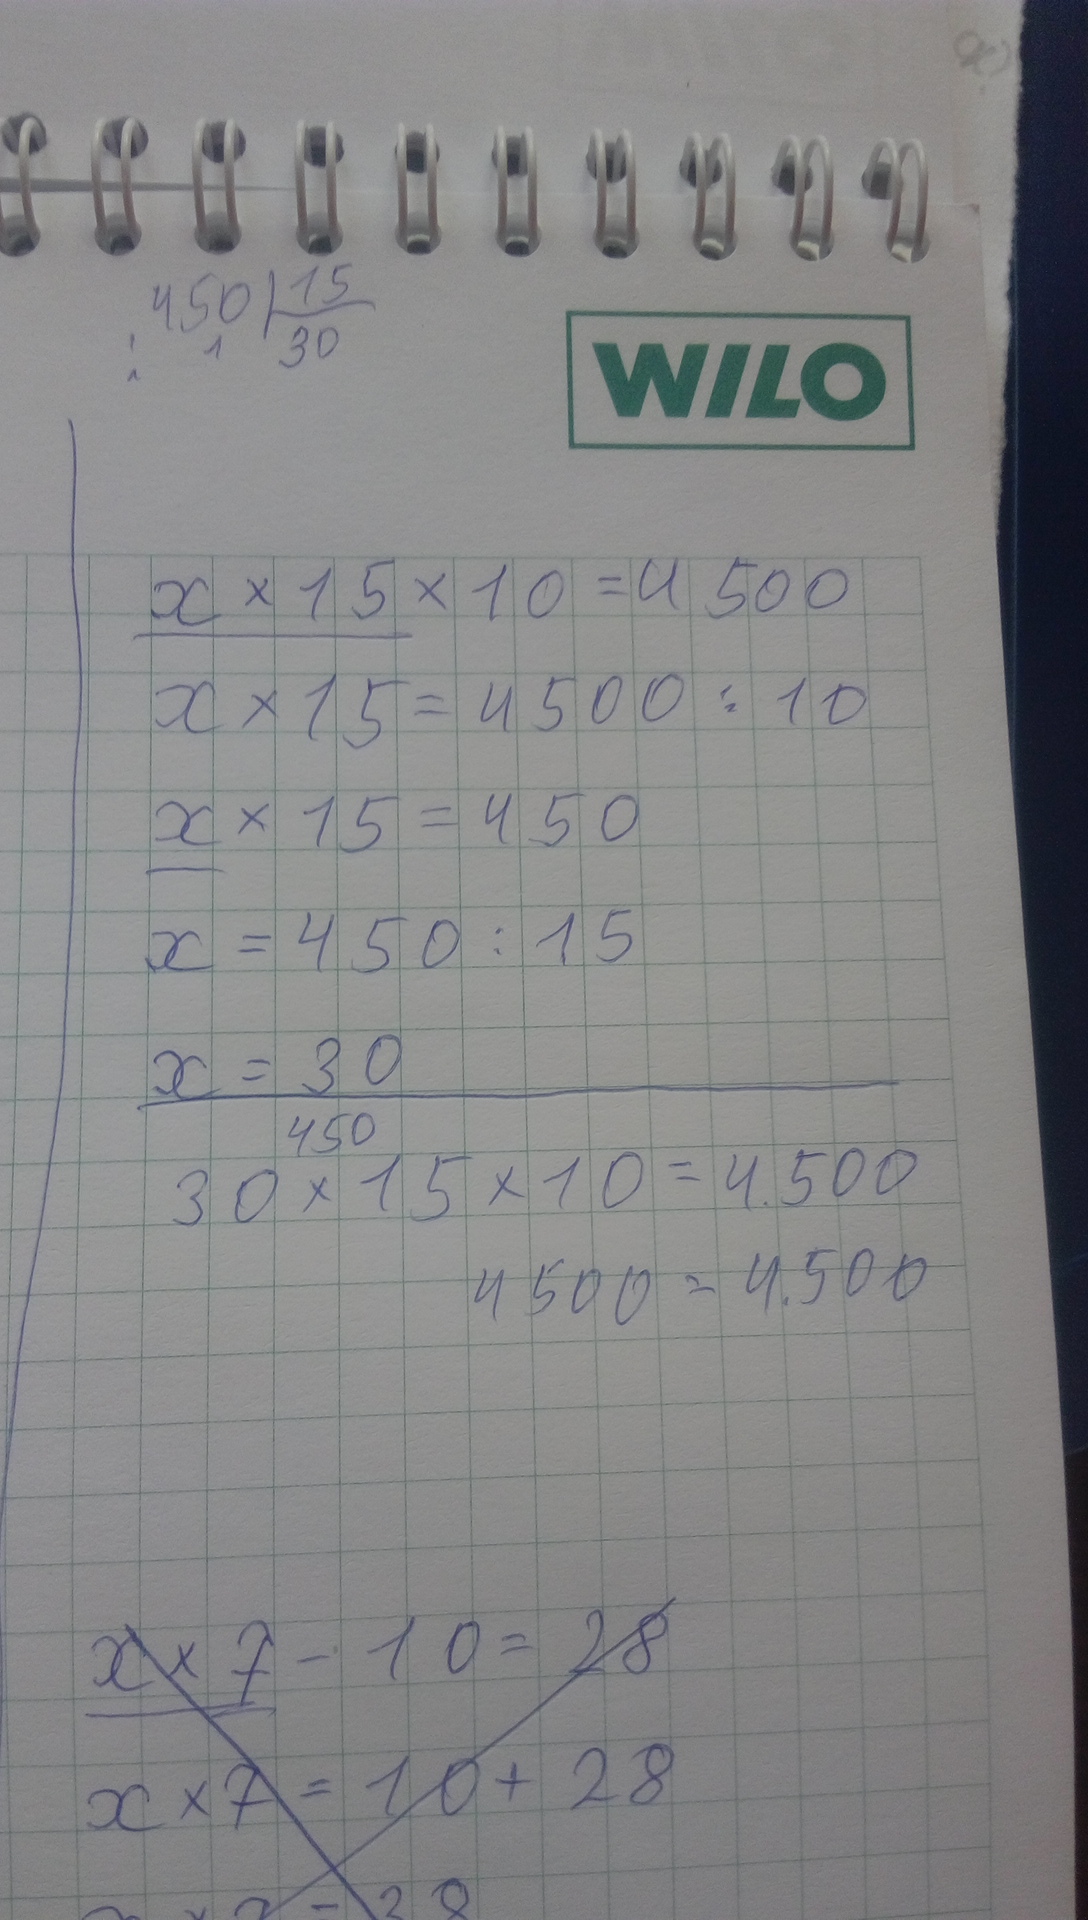 450 | 15
: 1 30
WILO
x × 15 × 10 = 4 500
x × 15 = 4500 : 10
x × 15 = 450
x = 450 : 15
x = 30
450
30 × 15 × 10 = 4.500
4500 = 4.500
x × 7 - 10 = 28
x × 7 = 10 + 28
= 38